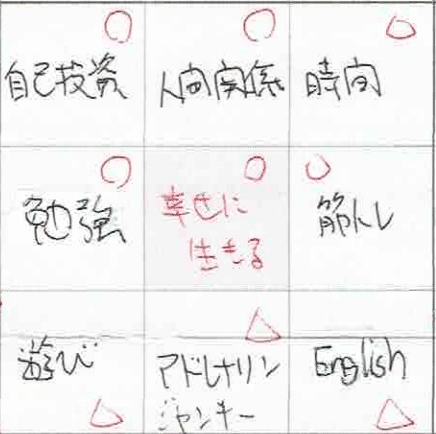 自己投資
人間関係
時間
勉強
幸せに
生きる
筋トレ
遊び
アドレナリン
ジャンキー
English